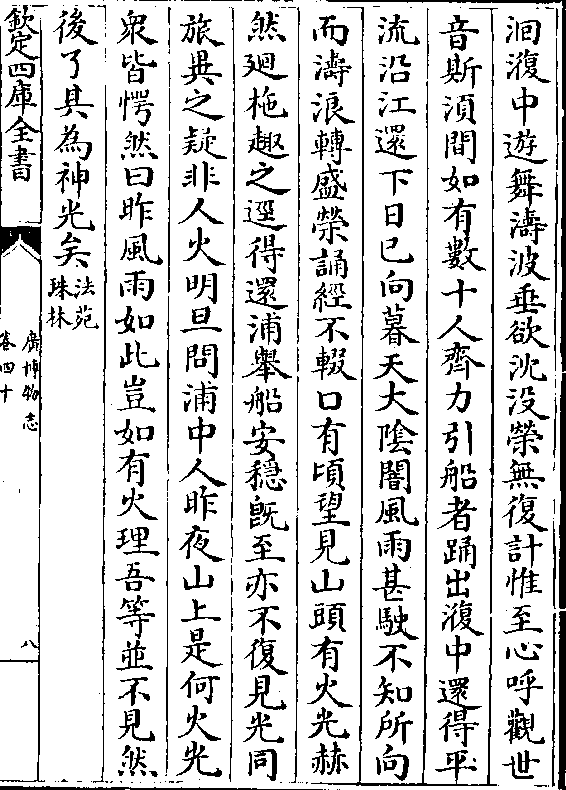 洄澓中遊舞濤波垂欲沈没榮無復計惟至心呼觀世
音斯湏間如有數十人齊力引船者踊出澓中還得平
流沿江還下日已向暮天大陰闇風雨甚駛不知所向
而濤浪轉盛榮誦經不輟口有頃望見山頭有火光赫
然廻柂趣之逕得還浦舉船安穩既至亦不復見光同
旅異之疑非人火明旦問浦中人昨夜山上是何火光
衆皆愕然曰昨風雨如此豈如有火理吾等並不見然
後了其為神光矣法苑
珠林
欽定四庫全書
廣博物志
卷四十
八